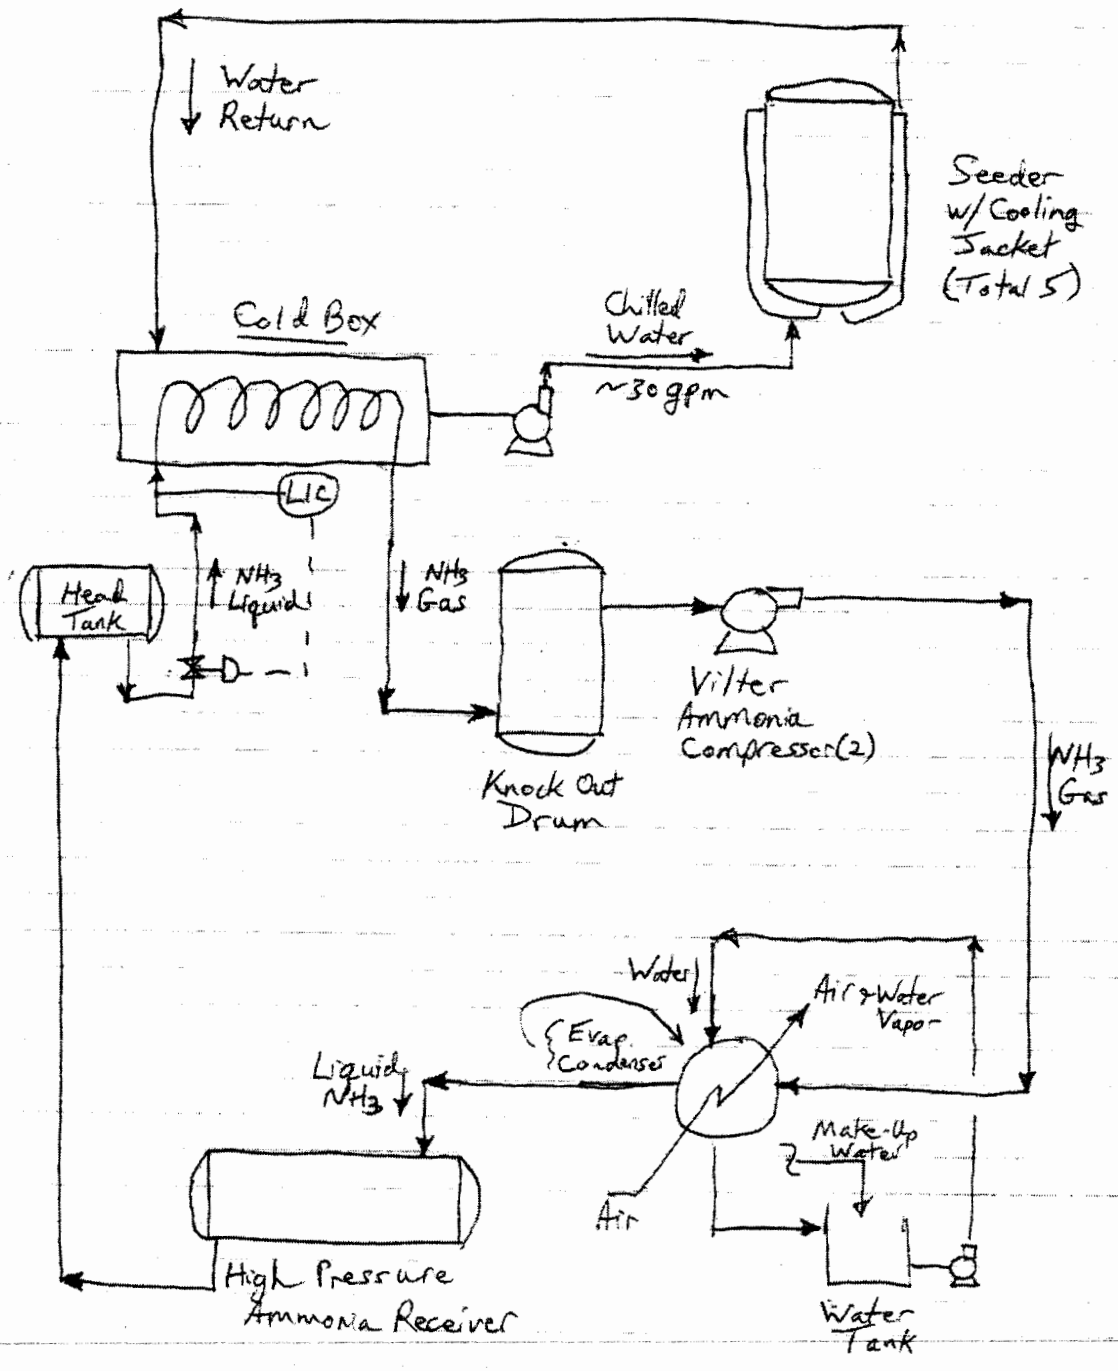 Water
Return
Seeder
w/ Cooling
Jacket
(Total 5)
Chilled
Water
~30 gpm
Cold Box
LIC
Head
Tank
NH3
Liquid
NH3
Gas
Vilter
Ammonia
Compressor(2)
Knock Out
Drum
NH3
Gas
Water
Air & Water
Vapor
Evap.
Condenser
Liquid
NH3
Make-Up
Water
Air
High Pressure
Ammonia Receiver
Water
Tank